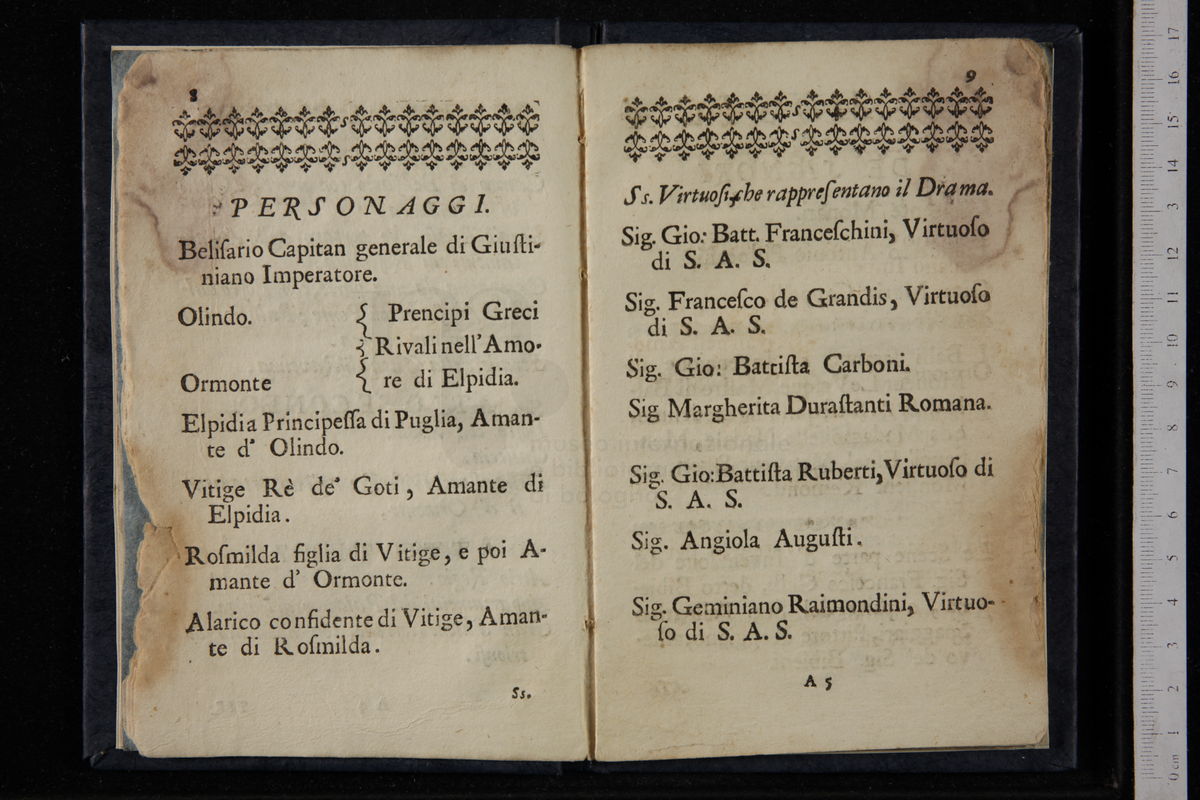 8
PERSONAGGI.
Beliſario Capitan generale di Giuſti-
niano Imperatore.
Olindo. { Prencipi Greci
{ Rivali nell'Amo-
Ormonte { re di Elpidia.
Elpidia Principeſſa di Puglia, Aman-
te d' Olindo.
Vitige Rè de' Goti, Amante di
Elpidia.
Roſmilda figlia di Vitige, e poi A-
mante d' Ormonte.
Alarico confidente di Vitige, Aman-
te di Roſmilda.
Ss.
9
Ss. Virtuoſi, che rappreſentano il Drama.
Sig. Gio: Batt. Franceſchini, Virtuoſo
di S. A. S.
Sig. Franceſco de Grandis, Virtuoſo
di S. A. S.
Sig. Gio: Battiſta Carboni.
Sig Margherita Duraſtanti Romana.
Sig. Gio: Battiſta Ruberti, Virtuoſo di
S. A. S.
Sig. Angiola Auguſti.
Sig. Geminiano Raimondini, Virtuo-
ſo di S. A. S.
A 5
0 cm 1 2 3 4 5 6 7 8 9 10 11 12 13 14 15 16 17